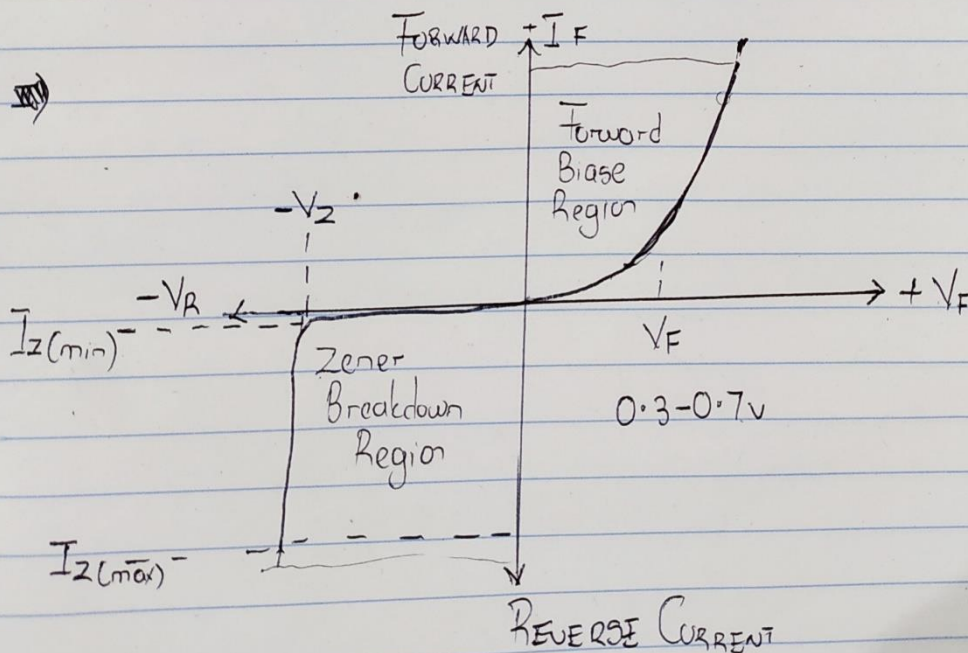 FORWARD
CURRENT
+ IF
Forward
Biase
Region
-VZ
-VR
+ VF
IZ(min)
VF
Zener
Breakdown
Region
0.3-0.7v
IZ(max)
REVERSE CURRENT